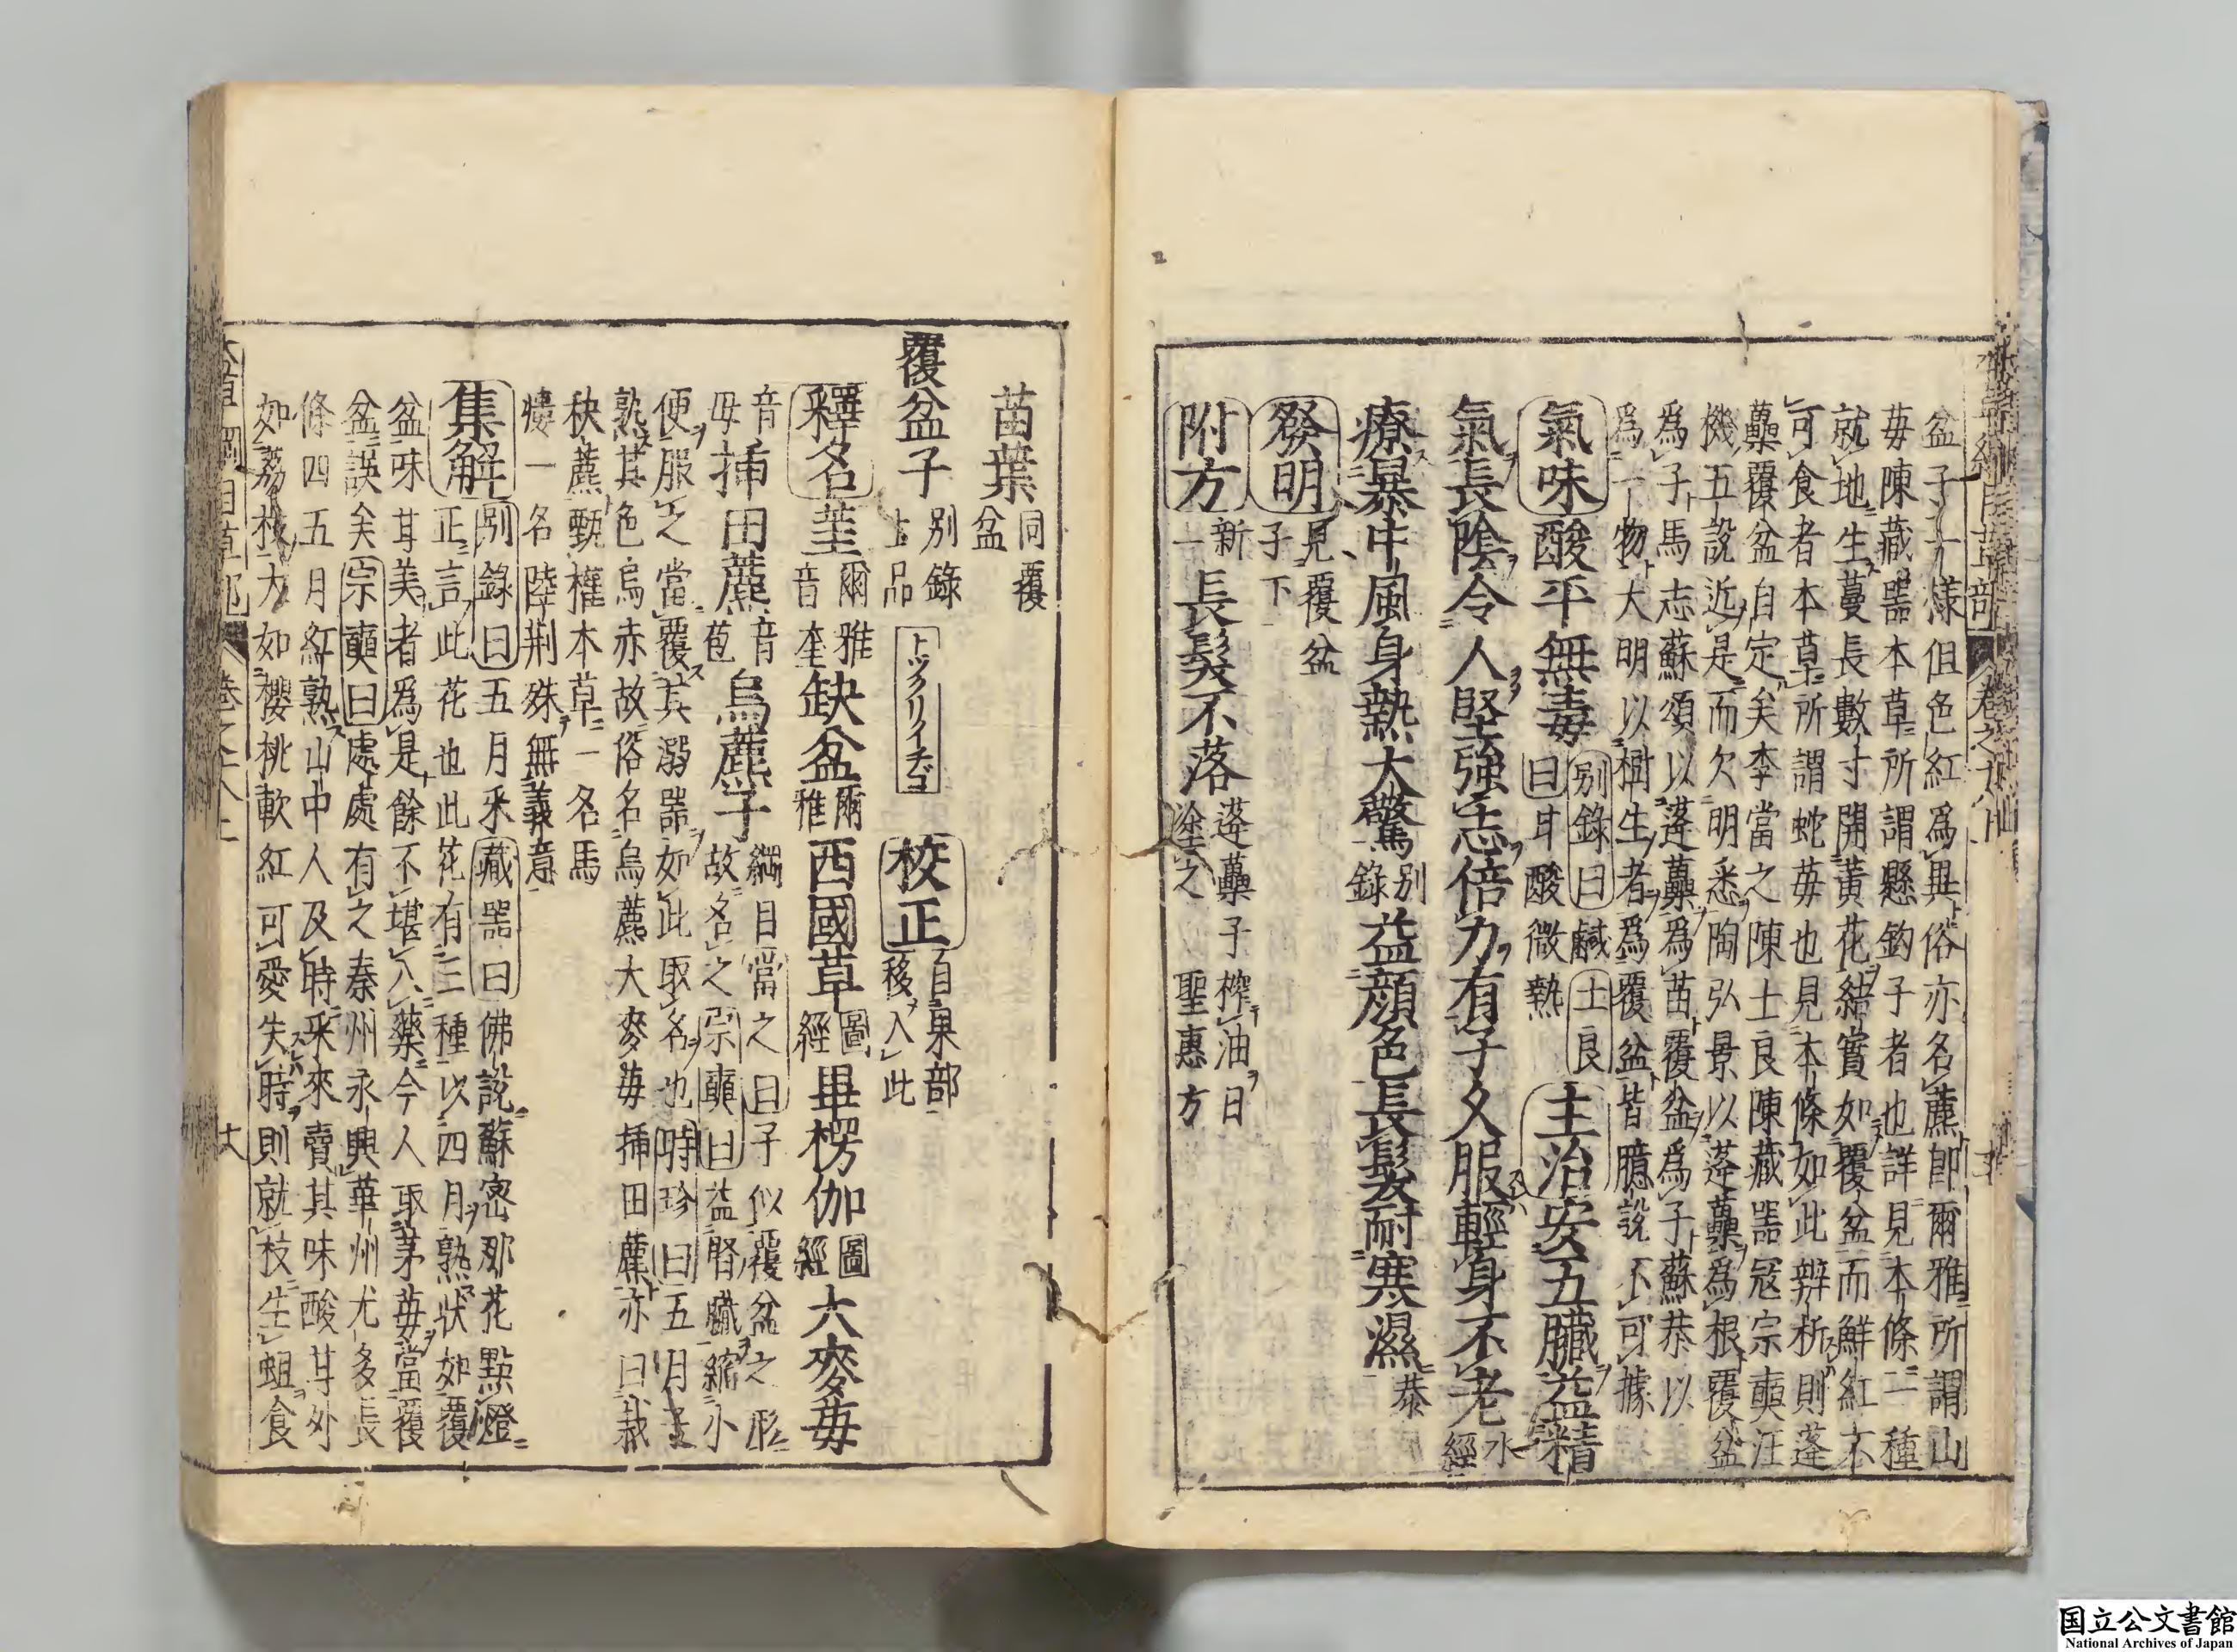 盆子一樣但色紅爲異俗亦名藨即爾雅所謂山
苺陳藏器本草所謂懸鈎子者也詳見本條一種
就地生蔓長數寸開黃花結實如覆盆而鮮紅不
可食者本草所謂蛇苺也見本條如此辨析則蓬
蘽覆盆自定矣李當之陳士良陳藏器寇宗奭汪
機五說近是而欠明悉陶弘景以蓬蘽爲根覆盆
爲子馬志蘇頌以蓬蘽爲苗覆盆爲子蘇恭以
爲一物大明以樹生者爲覆盆皆臆說不可據
氣味酸平無毒別錄曰鹹士良曰甘酸微熱主治安五臟益精
氣長陰令人堅強志倍力有子久服輕身不老水經
療暴中風身熱大驚別錄益顏色長髮耐寒濕恭
發明見覆盆子下
附方新一長髮不落蓬蘽子榨油日塗之聖惠方
苗葉同覆盆
覆盆子別錄上品トックリイチゴ校正自果部移入此
釋名堇爾雅音奎缺盆爾雅西國草圖經畢楞伽圖經大麥苺
音母插田藨音苞烏藨子綱目當之曰子似覆盆之形故名之宗奭曰益腎臟縮小
便服之當覆其溺器如此取名也時珍曰五月子
熟其色烏赤故俗名烏藨大麥苺插田藨亦曰栽
秧藨甄權本草一名馬
瘻一名陸荊殊無義意
集解別錄曰五月采藏器曰佛說蘇密那花點燈
正言此花也此花有三種以四月熟狀如覆
盆味甘美者爲是餘不堪入藥今人取茅苺當覆
盆誤矣宗奭曰處處有之秦州永興華州尤多長
條四五月紅熟山中人及時采來賣其味酸甘外
如荔枝大如櫻桃軟紅可愛失時則就枝生蛆食
国立公文書館
National Archives of Japan